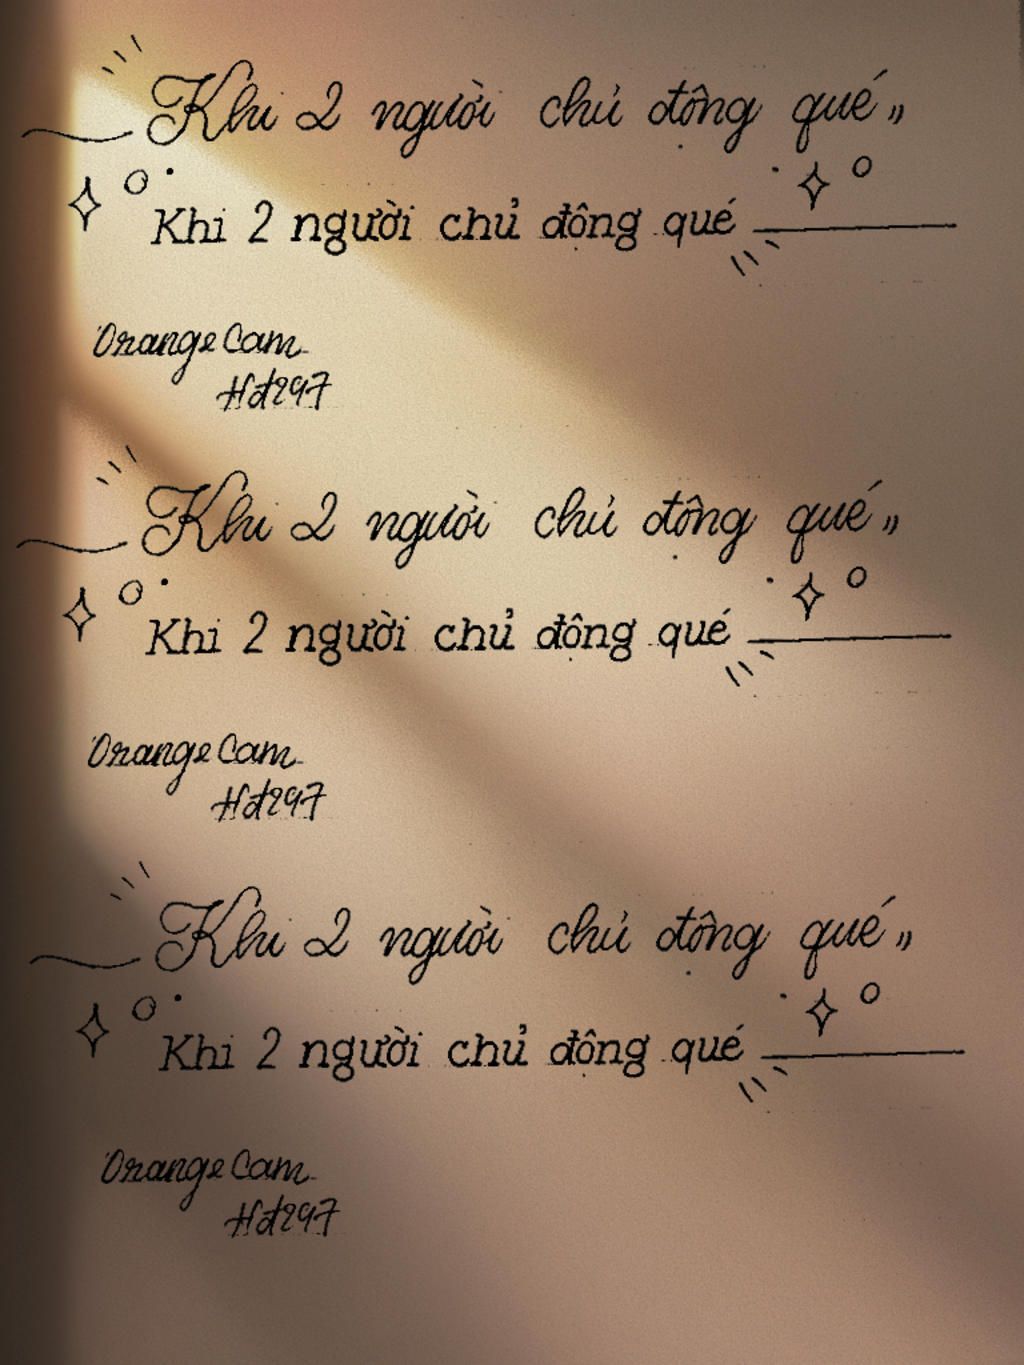 Khi 2 người chủ động qué„
Khi 2 người chủ động qué
Orange Cam
Hđ297
Khi 2 người chủ động qué„
Khi 2 người chủ động qué
Orange Cam
Hđ297
Khi 2 người chủ động qué„
Khi 2 người chủ động qué
Orange Cam
Hđ297